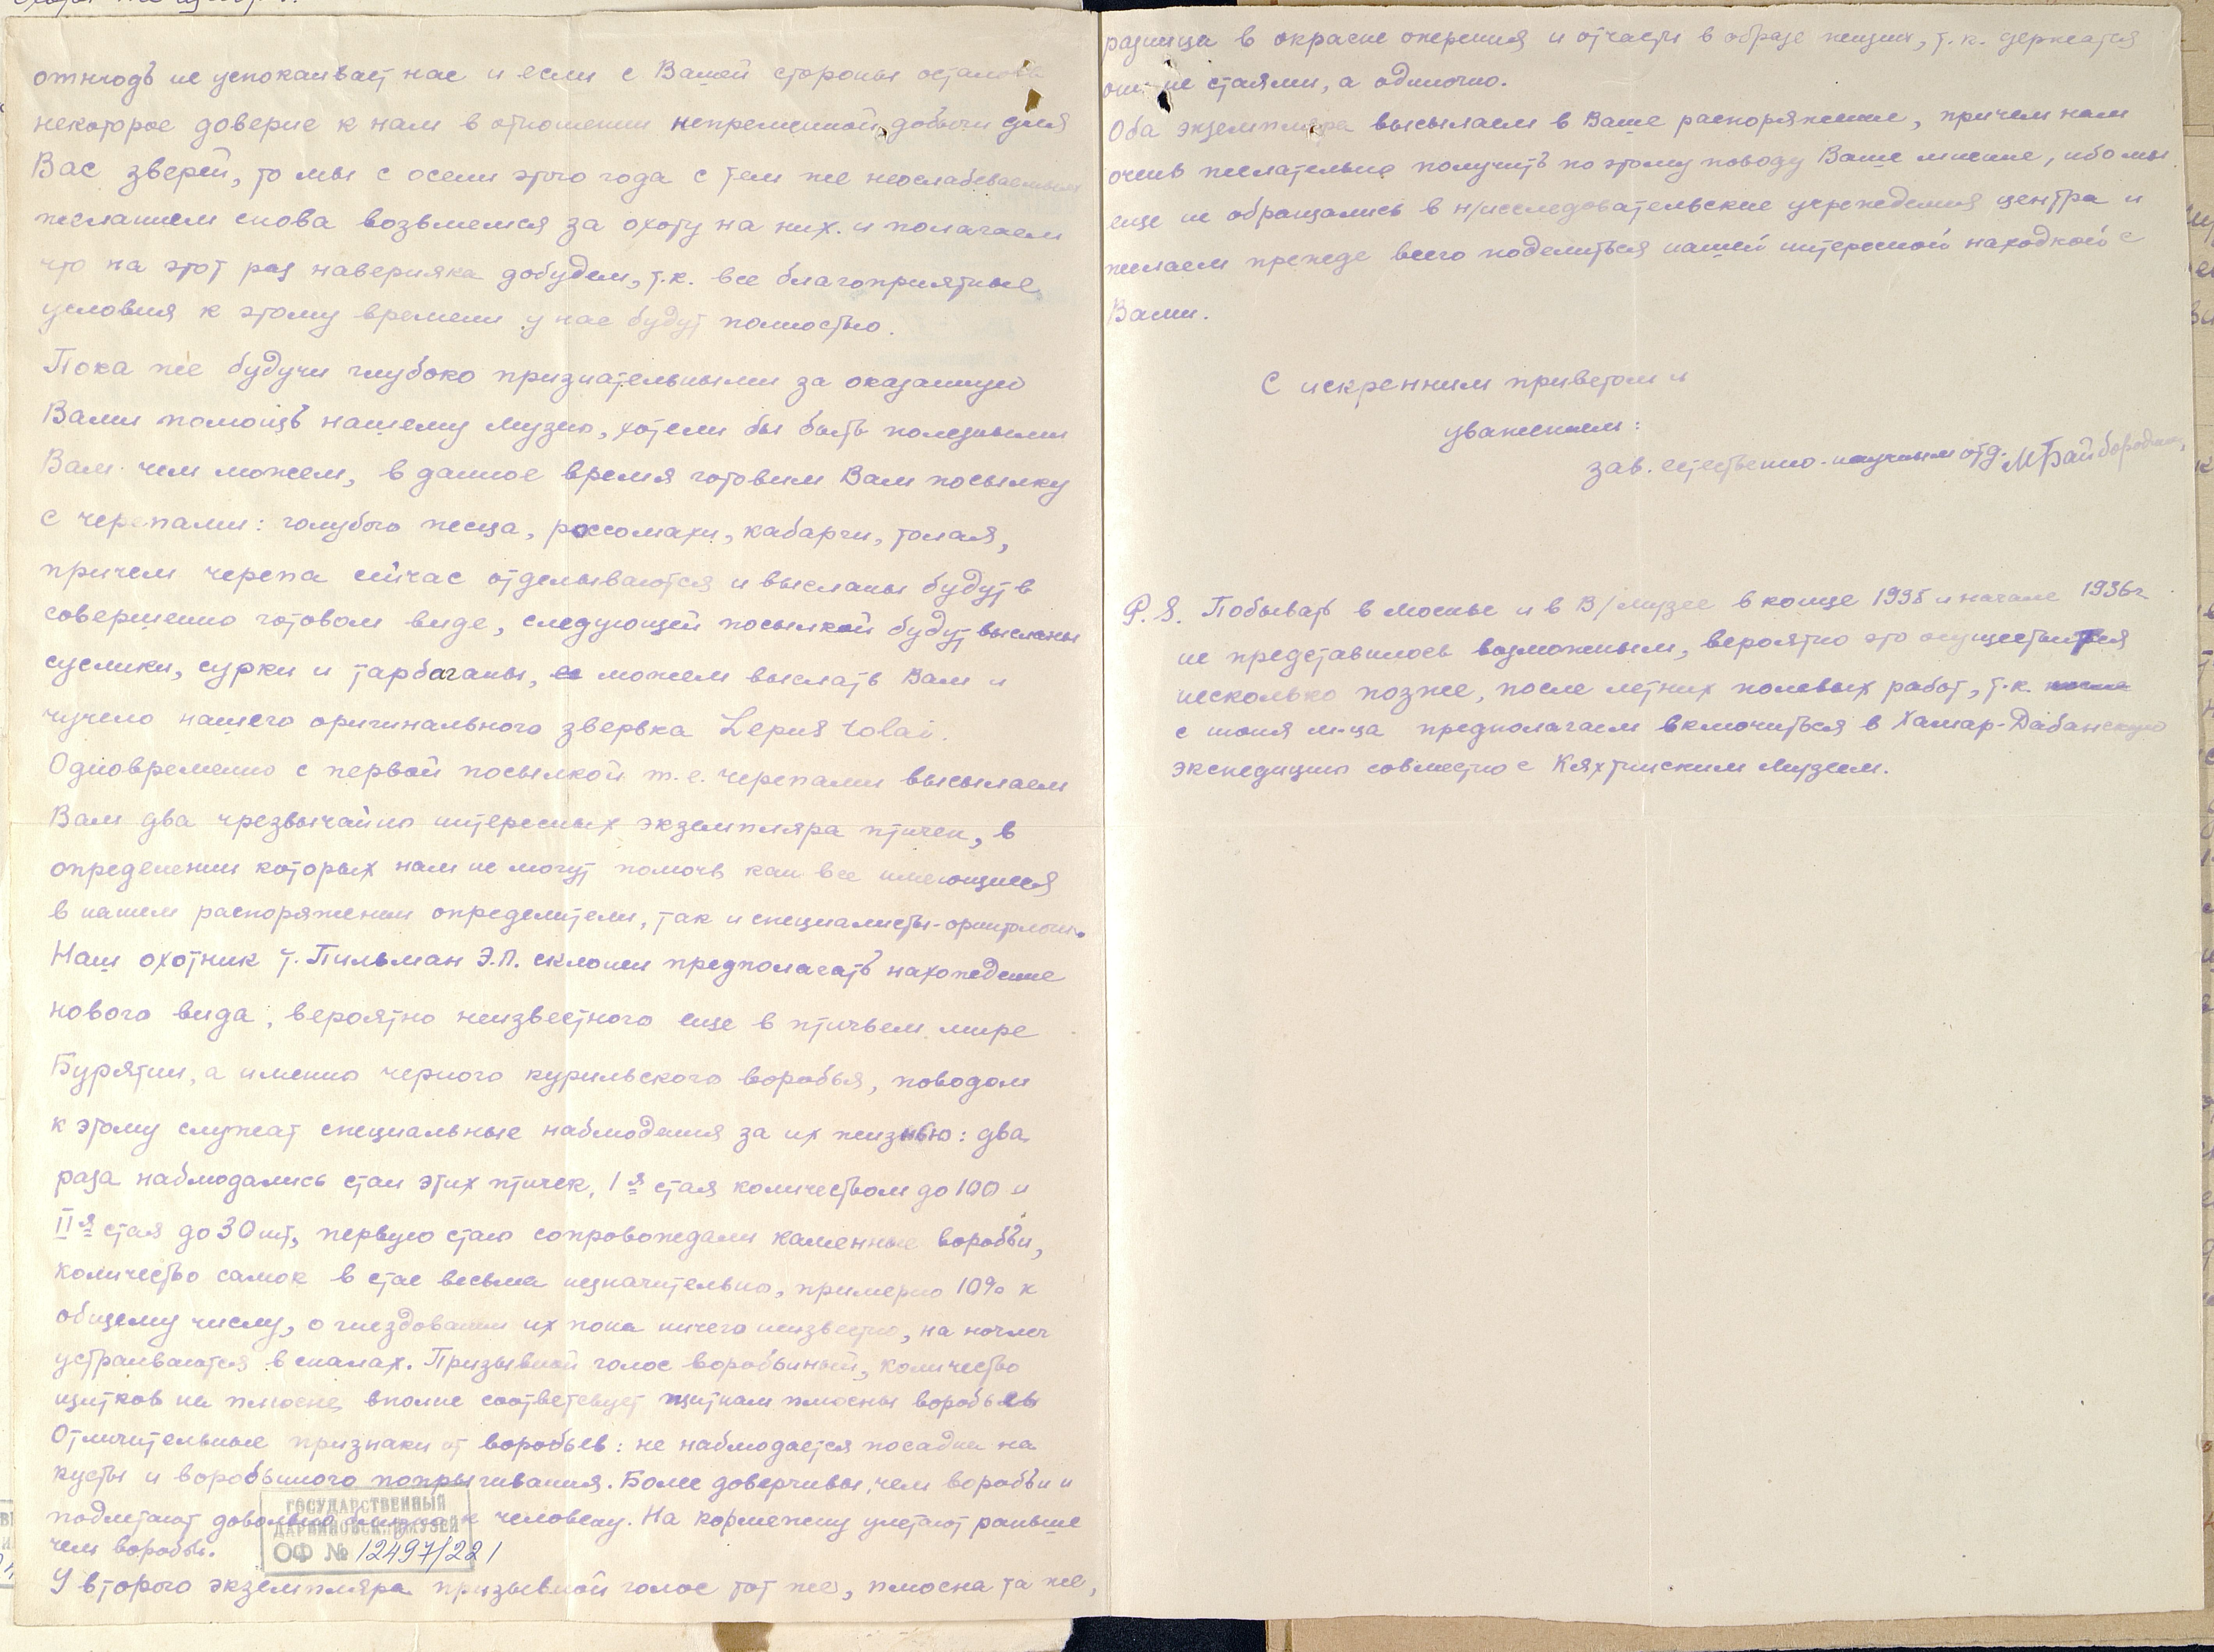 отнюдь не успокаивает нас и если с Вашей стороны осталось
некоторое доверие к нам в отношении непременной добычи для
Вас зверей, то мы с осени этого года с тем же неослабеваемым
желанием снова возьмемся за охоту на них. и полагаем
что на этот раз наверняка добудем, т.к. все благоприятные
условия к этому времени у нас будут полностью.
Пока же будучи глубоко признательными за оказанную
Вами помощь нашему Музею, хотели бы быть полезными
Вам чем можем, в данное время готовим Вам посылку
с черепами: голубого песца, россомахи, кабарги, толая,
причем черепа сейчас отделываются и высланы будут в
совершенно готовом виде, следующей посылкой будут высланы
суслики, сурки и тарбаганы, можем выслать Вам и
чучело нашего оригинального зверька Lepus tolai.
Одновременно с первой посылкой т.е. черепами высылаем
Вам два чрезвычайно интересных экземпляра птичек, в
определении которых нам не могут помочь как все имеющиеся
в нашем распоряжении определители, так и специалисты-орнитологи.
Наш охотник т. Пильман Э.П. склонен предполагать нахождение
нового вида, вероятно неизвестного еще в птичьем мире
Бурятии, а именно черного курильского воробья, поводом
к этому служат специальные наблюдения за их жизнью: два
раза наблюдались стаи этих птичек, 1я стая количеством до 100 и
IIя стая до 30 шт, первую стаю сопровождали каменные воробьи,
количество самок в стае весьма незначительно, примерно 10% к
общему числу, о гнездовании их пока ничего неизвестно, на ночлег
устраиваются в скалах. Призывной голос воробьиный, количество
щитков на плюсне вполне соответсвует щиткам плюсны воробьев
Отличительные признаки от воробьев: не наблюдается посадки на
кусты и воробьиного попрыгивания. Более доверчивы, чем воробьи и
подлетают довольно близко к человеку. На кормежку улетают раньше
чем воробьи.
У второго экземпляра призывной голос тот же, плюсна та же,
ГОСУДАРСТВЕННЫЙ
ДАРВИНОВСКИЙ МУЗЕЙ
ОФ № 12497/221
разница в окраске оперения и отчасти в образе жизни, т.к. держатся
они не стаями, а одиночно.
Оба экземпляра высылаем в Ваше распоряжение, причем нам
очень желательно получить по этому поводу Ваше мнение, ибо мы
еще не обращались в н/исследовательские учреждения центра и
желаем прежде всего поделиться нашей интересной находкой с
Вами.
С искренним приветом и
уважением:
зав. естественно-научным отд. МБайбородин
P.S. Побывать в Москве и в В/Музее в конце 1935 и начале 1936г.
не представилось возможным, вероятно это осуществится
несколько позже, после летних полевых работ, т.к.
с июня м-ца предполагаем включиться в Хамар-Дабанскую
экспедицию совместно с Кяхтинским Музеем.